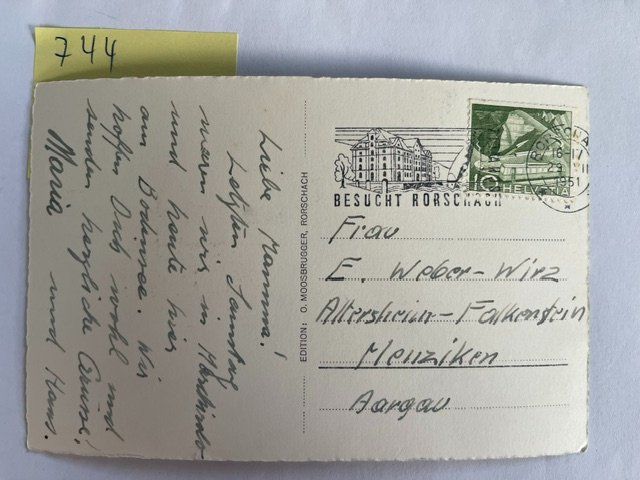 744
Liebe Mamma!
Letzten Samstag
waren wir in
und heute hier
am Bodensee. Wir
hoffen Dich wohl und
senden herzliche Grüsse!
Maria und Hans.
EDITION: O. MOOSBRUGGER, RORSCHACH
BESUCHT RORSCHACH
Frau
E. Weber-Wirz
Altersheim-Falkenstein
Menziken
Aargau